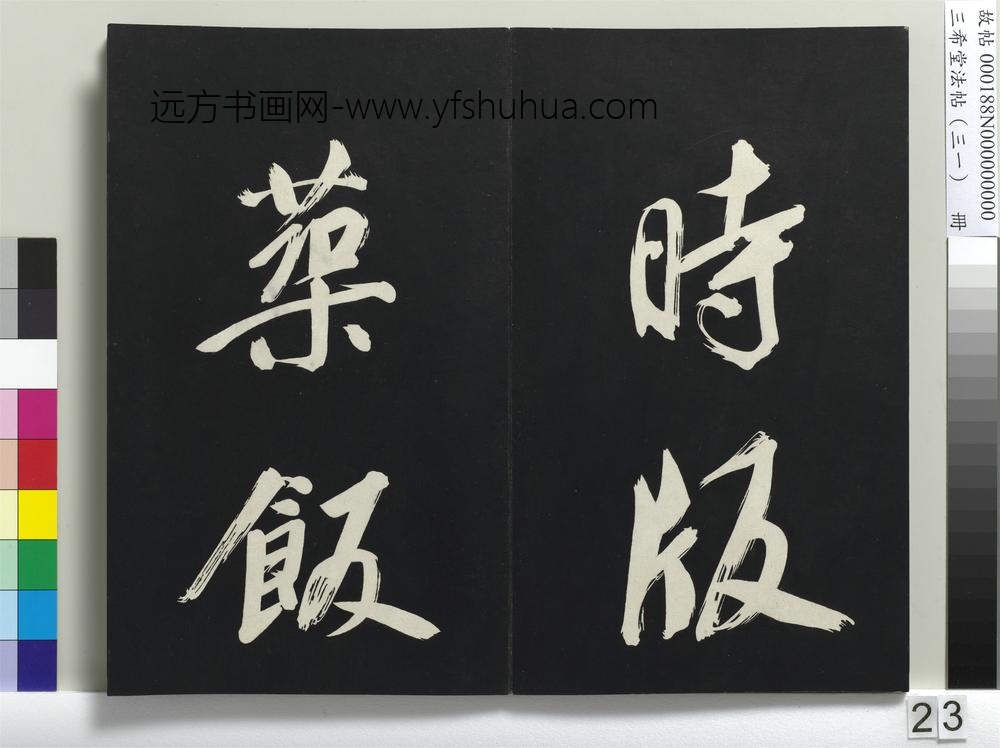 远方书画网-www.yfshuhua.com
時版
築飯
故帖 000188N000000000
三希堂法帖（三一） 冊
23